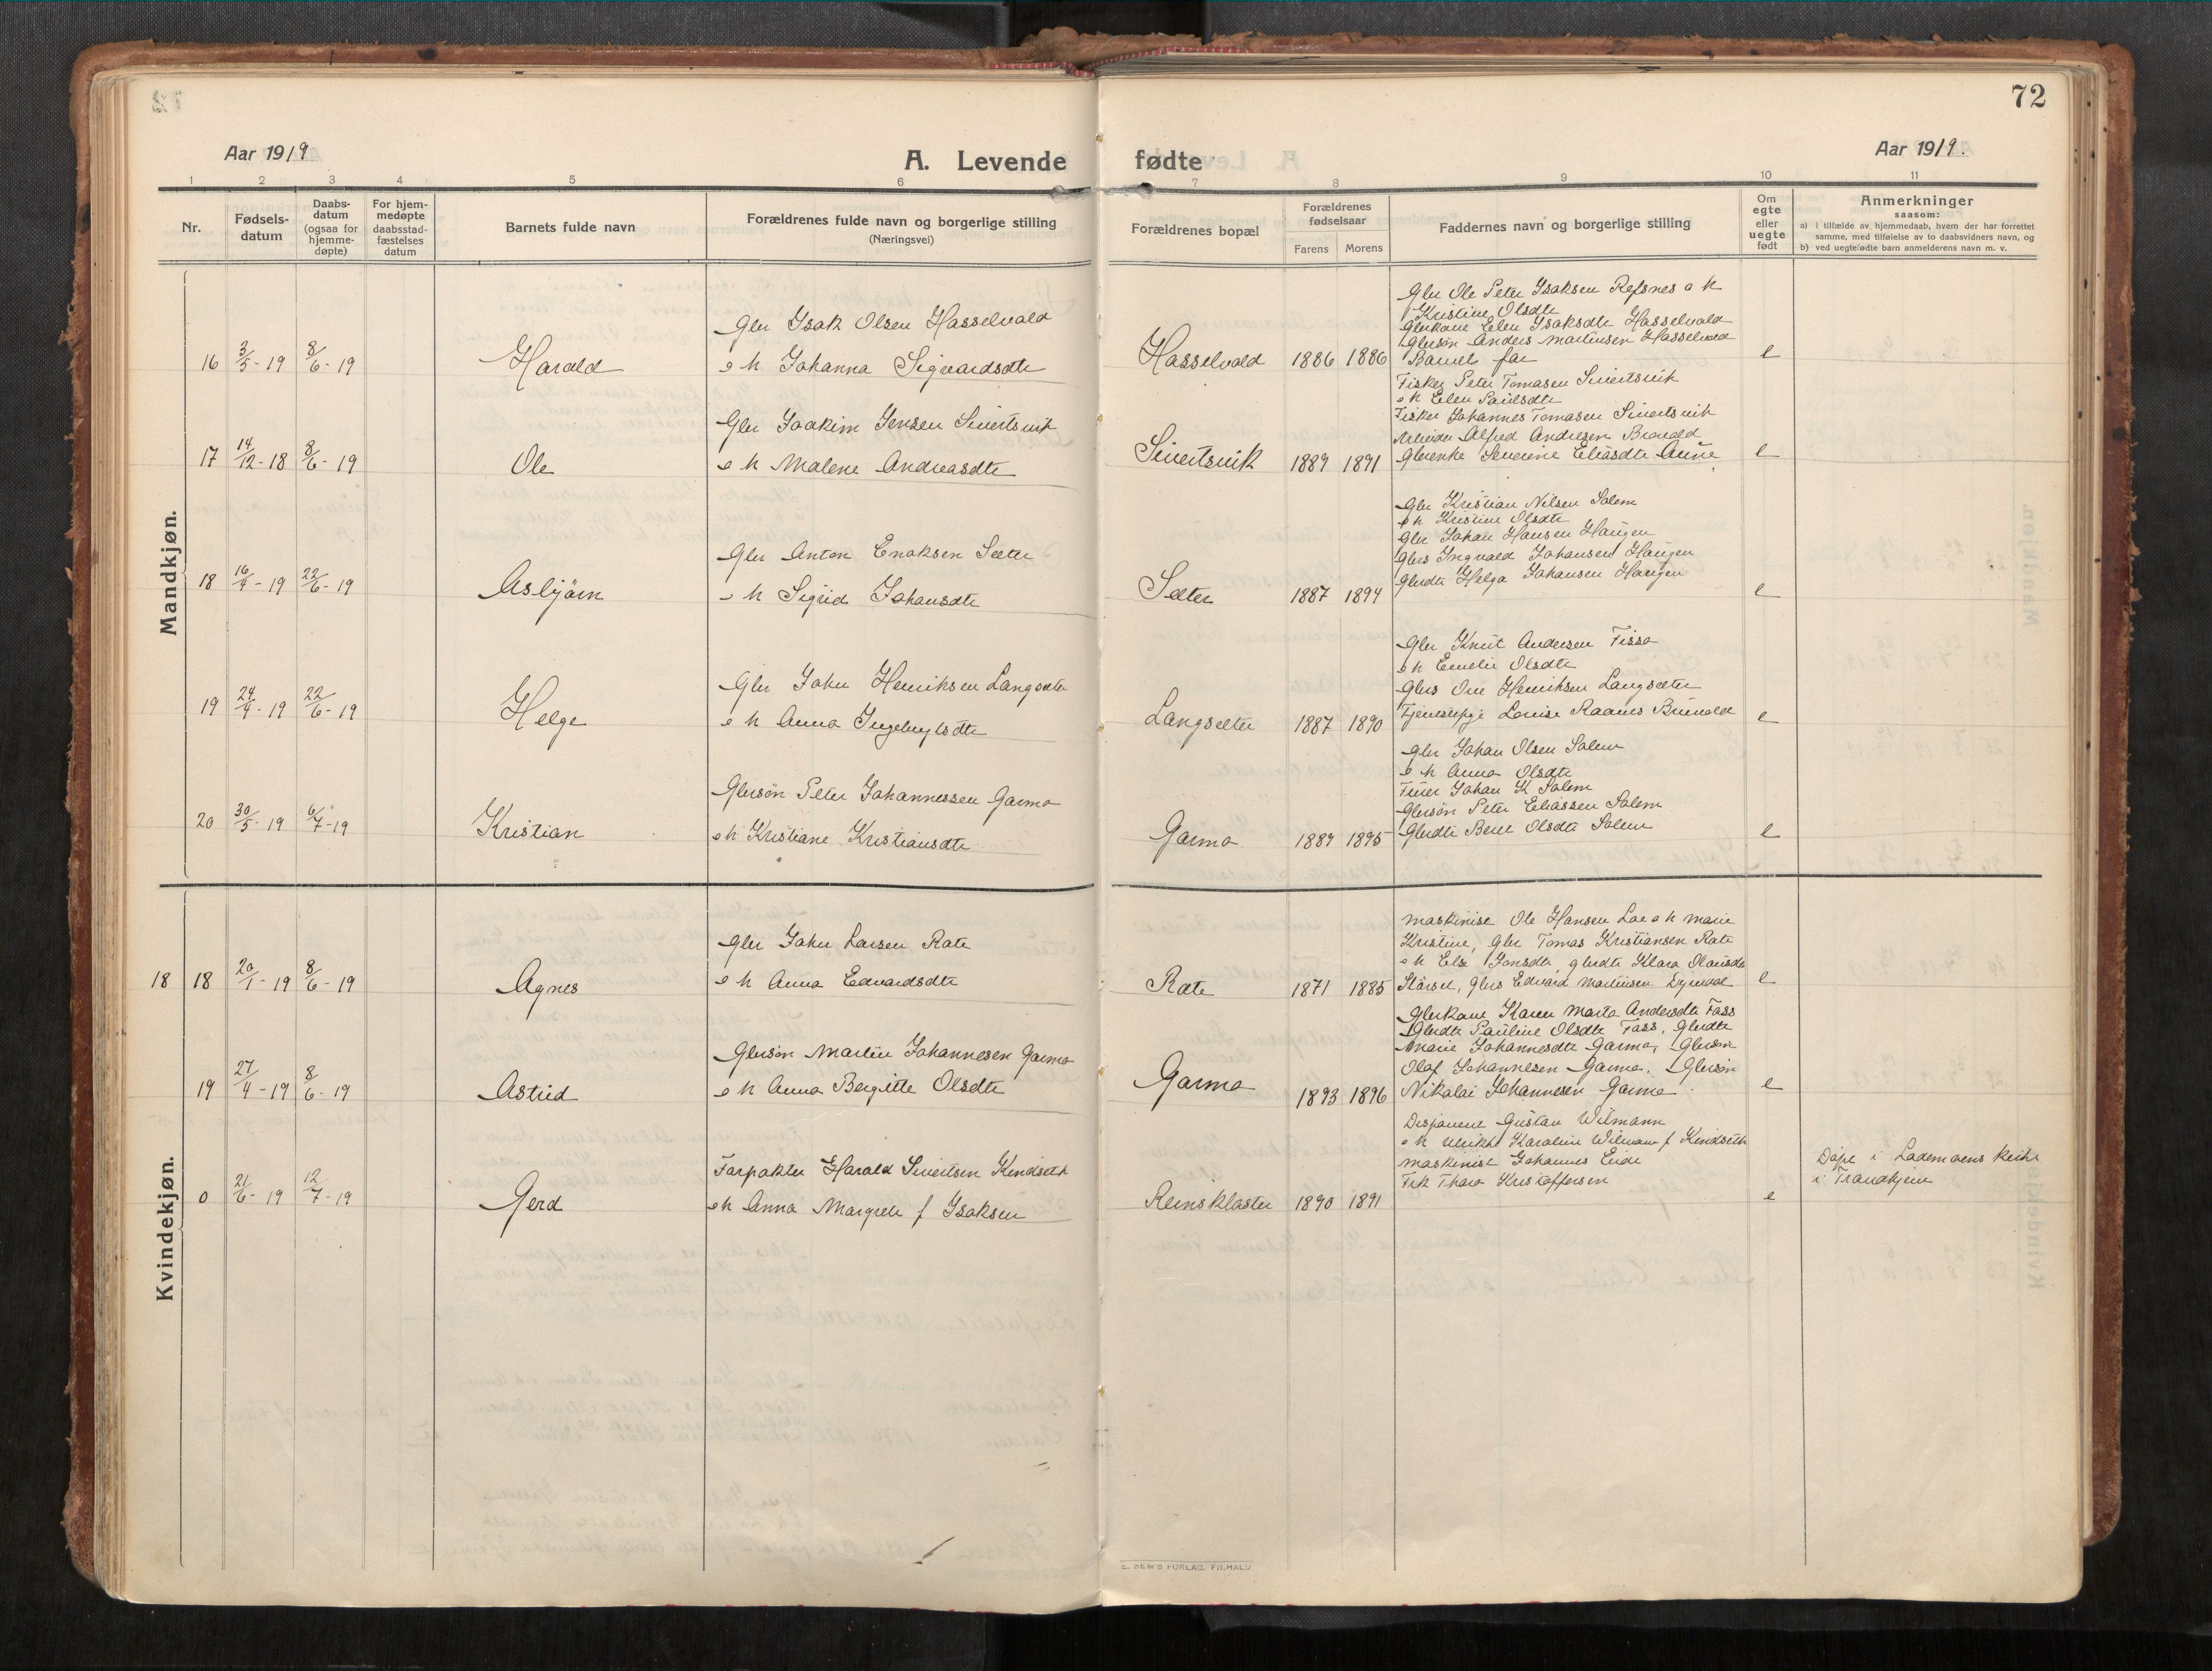 72
Aar 1919
A. Levende fødte
Aar 1919.
1 2 3 4 5 6 7 8 9 10 11
Nr.
Fødsels-
datum
Daabs-
datum
(ogsaa for
hjemme-
døpte)
For hjem-
medøpte
daabsstad-
fæstelses
datum
Barnets fulde navn
Forældrenes fulde navn og borgerlige stilling
(Næringsvei)
Forældrenes bopæl
Forældrenes
fødselsaar
Farens Morens
Faddernes navn og borgerlige stilling
Om
egte
eller
uegte
født
Anmerkninger
saasom:
a) i tilfælde av hjemmedaab, hvem der har forrettet
samme, med tilføielse av to daabsvidners navn, og
b) ved uegtefødte barn anmelderens navn m. v.
Mandkjøn.
16 3/5-19 8/6-19 Harald
Gbr Isak Olsen Hasselvold
o h Johanna Sigvardsdtr
Hasselvold 1886 1886
Gbr Ole Peter Isaksen Refsnes o h
Kristine Olsdtr
Gbrkone Elen Isaksdtr Hasselvold
Gbrsøn Anders Martinsen Hasselvold
Barnets far
e
17 14/12-18 8/6-19 Ole
Gbr Joakim Jensen Sivertsvik
o h Malene Andreasdtr
Sivertsvik 1889 1891
Fisker Peter Tomasen Sivertsvik
o h Elen Paulsdtr
Fisker Johannes Tomasen Sivertsvik
Arbeider Alfred Andresen
Gbrenke Severine Eliasdtr Aune
e
18 16/4-19 22/6-19 Asbjørn
Gbr Anton Enoksen Sæter
o h Sigrid Johansdtr
Sæter 1887 1894
Gbr Kristian Nilsen Solem
o h Kristine Olsdtr
Gbr Johan Hansen Haugen
Gbrs Ingvald Johansen Haugen
Gbrdtr Helga Johansen Haugen
e
19 24/4-19 22/6-19 Helge
Gbr Johu Henriksen Langsæter
o h Anna Ingebrigtsdtr
Langsæter 1887 1890
Gbr Knut Andersen Fissa
o h Emelie Olsdtr
Gbrs Ove Henriksen Langsæter
Tjenestepge Louise Raanes
e
20 30/5-19 6/7-19 Kristian
Gbrsøn Peter Johannessen Garmo
o h Kristiane Kristiansdtr
Garmo 1889 1895
Gbr Johan Olsen Solem
o h Anna Olsdtr
Johan K Solem
Gbrsøn Peter Eliassen Solem
Gbrdtr Olsdtr Solem
e
Kvindekjøn.
18 18 20/1-19 8/6-19 Agnes
Gbr Johu Larsen Rote
o h Anna Edvardsdtr
Rote 1871 1885
Maskinist Ole Hansen Loe o h Marie
Kristine, Gbr Tomas Kristiansen Rote
o h Else Jonsdtr, gbrdtr Klara Olausdtr
Størset, Gbrs Edvard Martinsen
e
19 27/4-19 8/6-19 Astrid
Gbrsøn Martin Johannesen Garmo
o h Anna Bergitte Olsdtr
Garmo 1893 1896
Gbrkone Karen Marta Andersdtr Foss
Gbrdtr Pauline Olsdtr Foss, Gbrdtr
Marie Johannesdtr Garmo, Gbrsøn
Olaf Johannesen Garmo, Gbrsøn
Nikolai Johannesen Garmo
e
0 21/6-19 12/7-19 Gerd
Forpakter Harald Sivertsen Kindseth
o h Anna Margrete f Isaksen
Reinskloster 1890 1891
Disponent Gustav Wilmann
o h Ulrikke Karoline Wilmann f Kindseth
Maskinist Johannes Eide
Frk Thora Kristoffersen
e
Døpt i Lademoens kirke
i Trondhjem
E. SEM'S FORLAG, FR.HALD